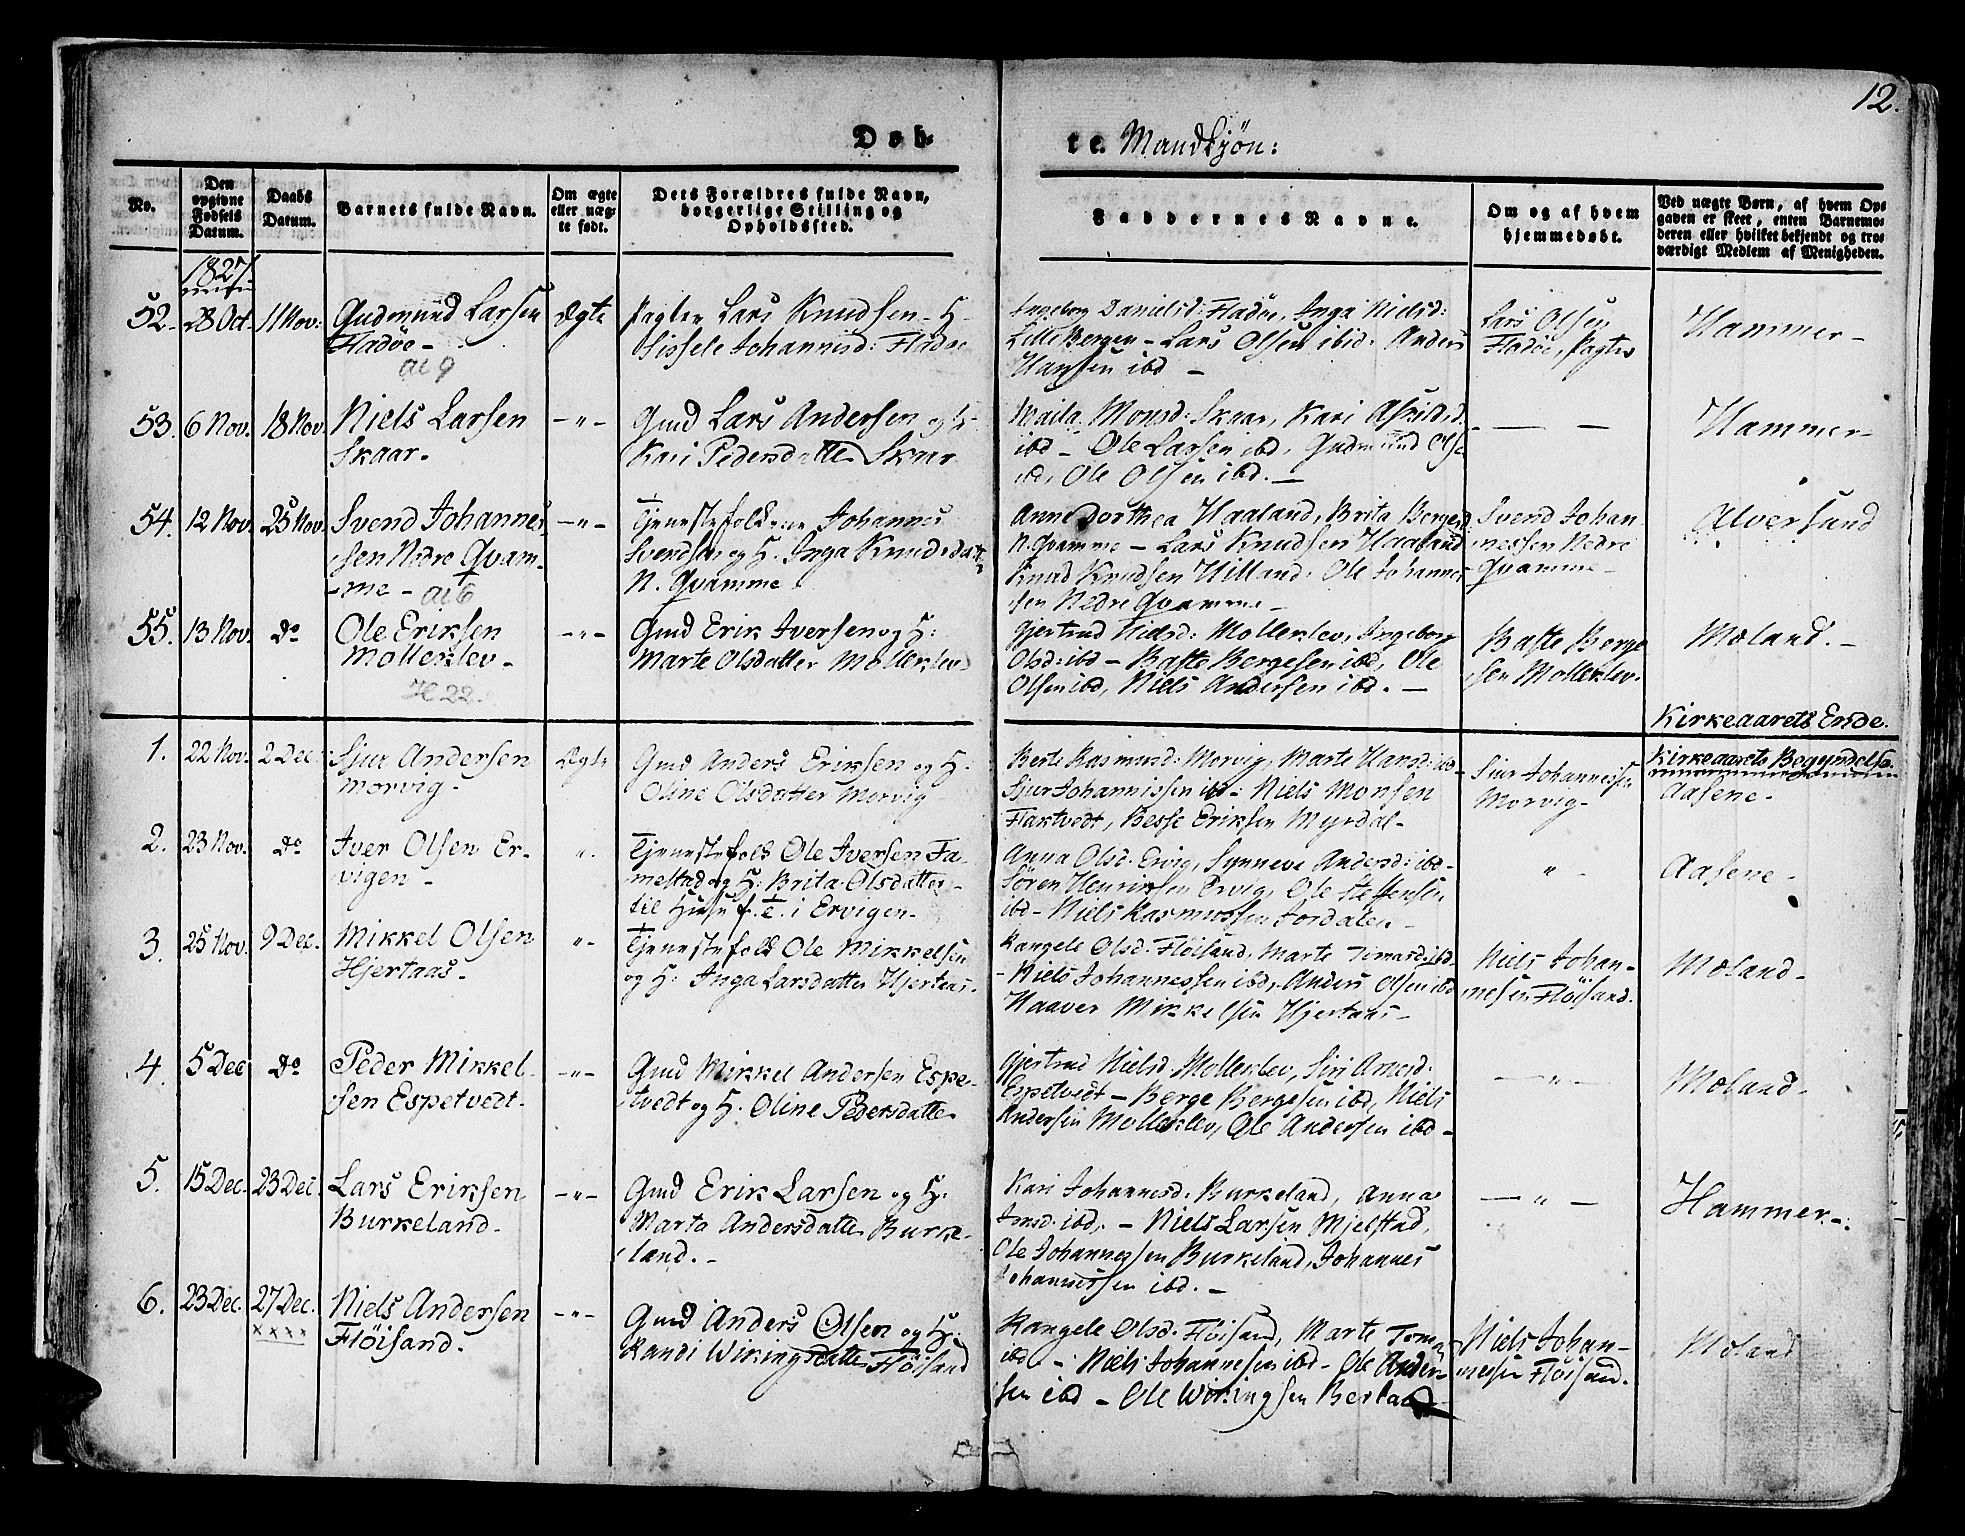 12.
Døb-
te. Mandkjøn:
No.
Den
opgivne
Fødsels
Datum.
Daabs
Datum.
Barnets fulde Navn.
Om ægte
eller uæg-
te født.
Dets Forældres fulde Navn,
borgerlige Stilling og
Opholdssted.
Faddernes Navne.
Om og af hvem
hjemmedøbt.
Ved uægte Børn, af hvem Op-
gaven er skeet, enten Barnemo-
deren eller hvilket bekjendt og tro-
værdigt Medlem af Menigheden.
1827
52. 28 Oct. 11 Nov:
Gudmund Larsen
Fladöe -
Ægte
Pagter Lars Knudsen - H
Sissele Johannisd: Fladöe
Ingeborg Danielsd: Fladöe, Inga Nielsd:
Lille Bergen - Lars Olsen ibid: Anders
Hansen ibd -
Lars Olsen
Fladöe, Pagter
Hammer -
53. 6 Nov. 18 Nov.
Niels Larsen
Skaar.
- " -
Gmd Lars Andersen og H.
Kari Pedersdatter Skaar
Maila Monsd: Skaar, Kari
ibd - Ole Larsen ibd, Gudmund Olse
ibd, Ole Olsen ibd. -
- -
Hammer -
54. 12 Nov. 25 Nov.
Svend Johannes
sen Nedre Qvam-
me -
- " -
Tjenestefoldene Johannes
Svendsen og H. Inga Knudsdatt
N. Qvamme
Ann Dorthea Haaland, Brita Bergesd
N. Qvamme - Lars Knudsen Haaland
Knud Knudsen Hilland, Ole Johannes-
sen Nedre Qvamme -
Svend Johan-
nessen Nedre
Qvamme -
Alversund
55. 13 Nov. Do
Ole Eriksen
Molleklev -
H 22.
- " -
Gmd Erik Iversen og H:
Marte Olsdatter Molleklev
Gjertrud Nielsd: Molleklev, Ingeborg
Olsd: ibd - Baste Bergesen ibd, Ole
Olsen ibd, Niels Andersen ibd. -
Baste Berge
sen Molleklev.
Moland. -
Kirkeaarets Ende.
Kirkeaarets Begyndelse.
1. 22 Nov. 2 Dec.
Sjur Andersen
Morvig -
Ægte
Gmd Anders Eriksen og H.
Oline Olsdatter Morvig
Berte Rasmusd: Morvig, Marte Hansd: ibd
Sjur Johannissen ibd - Niels Monsen
Flaktvedt, Besse Eriksen Myrdal -
Siur Johannissen
Morvig -
Aasene -
2. 23 Nov. Do
Iver Olsen Er-
vigen -
"
Tjenestefolk Ole Iversen Ta-
mestad og H: Brita Olsdatter -
til Huse f. t. i Ervigen -
Anna Olsd. Ervig, Synneve Andersd: ibd -
Sören Henriksen Ervig, Ole Steffensen
ibd - Niels Rasmussen Jordalen
" -
Aasene -
3. 25 Nov. 9 Dec.
Mikkel Olsen
Hjertaas -
" -
Tjenestefolk Ole Mikkelsen
og H: Inga Larsdatter Hjertaas -
Rangele Olsd: Flöisand, Marte Tomasd: ibd
- Niels Johannessen ibd, Anders Olsen ibd
Haaver Mikkelsen Hjertaas -
Niels Johan-
nessen Flöisand.
Moland -
4. 5 Dec Do
Peder Mikkel-
sen Espetvedt -
- " -
Gmd Mikkel Andersen Espe-
tvedt og H. Oline Pedersdatter
Gjertrud Nielsd. Molleklev, Siri Arnesd.
Espetvedt - Berge Bergesen ibd, Niels
Andersen Molleklev, Ole Andersen ibd -
- " -
Moland -
5. 15 Dec. 23 Dec.
Lars Eriksen
Burkeland -
- " -
Gmd Erik Larsen og H.
Marta Andersdatter Burke-
land. -
Kari Johannesd. Burkeland, Anna
Jonsd: ibd, - Niels Larsen Mjelstad,
Ole Johannessen Burkeland, Johannes
Johannessen ibd. -
- " -
Hammer -
6. 23 Dec. 27 Dec.
Niels Andersen
Flöisand.
- " -
Gmd Anders Olsen og H.
Randi Wikingsdatter Flöisand
Rangele Olsd. Flöisand, Marte Tomasd
ibd - Niels Johannesen ibd - Ole Ander-
sen ibd - Ole Wikingsen Berland
Niels Johan-
nessen Flöisand.
Moland